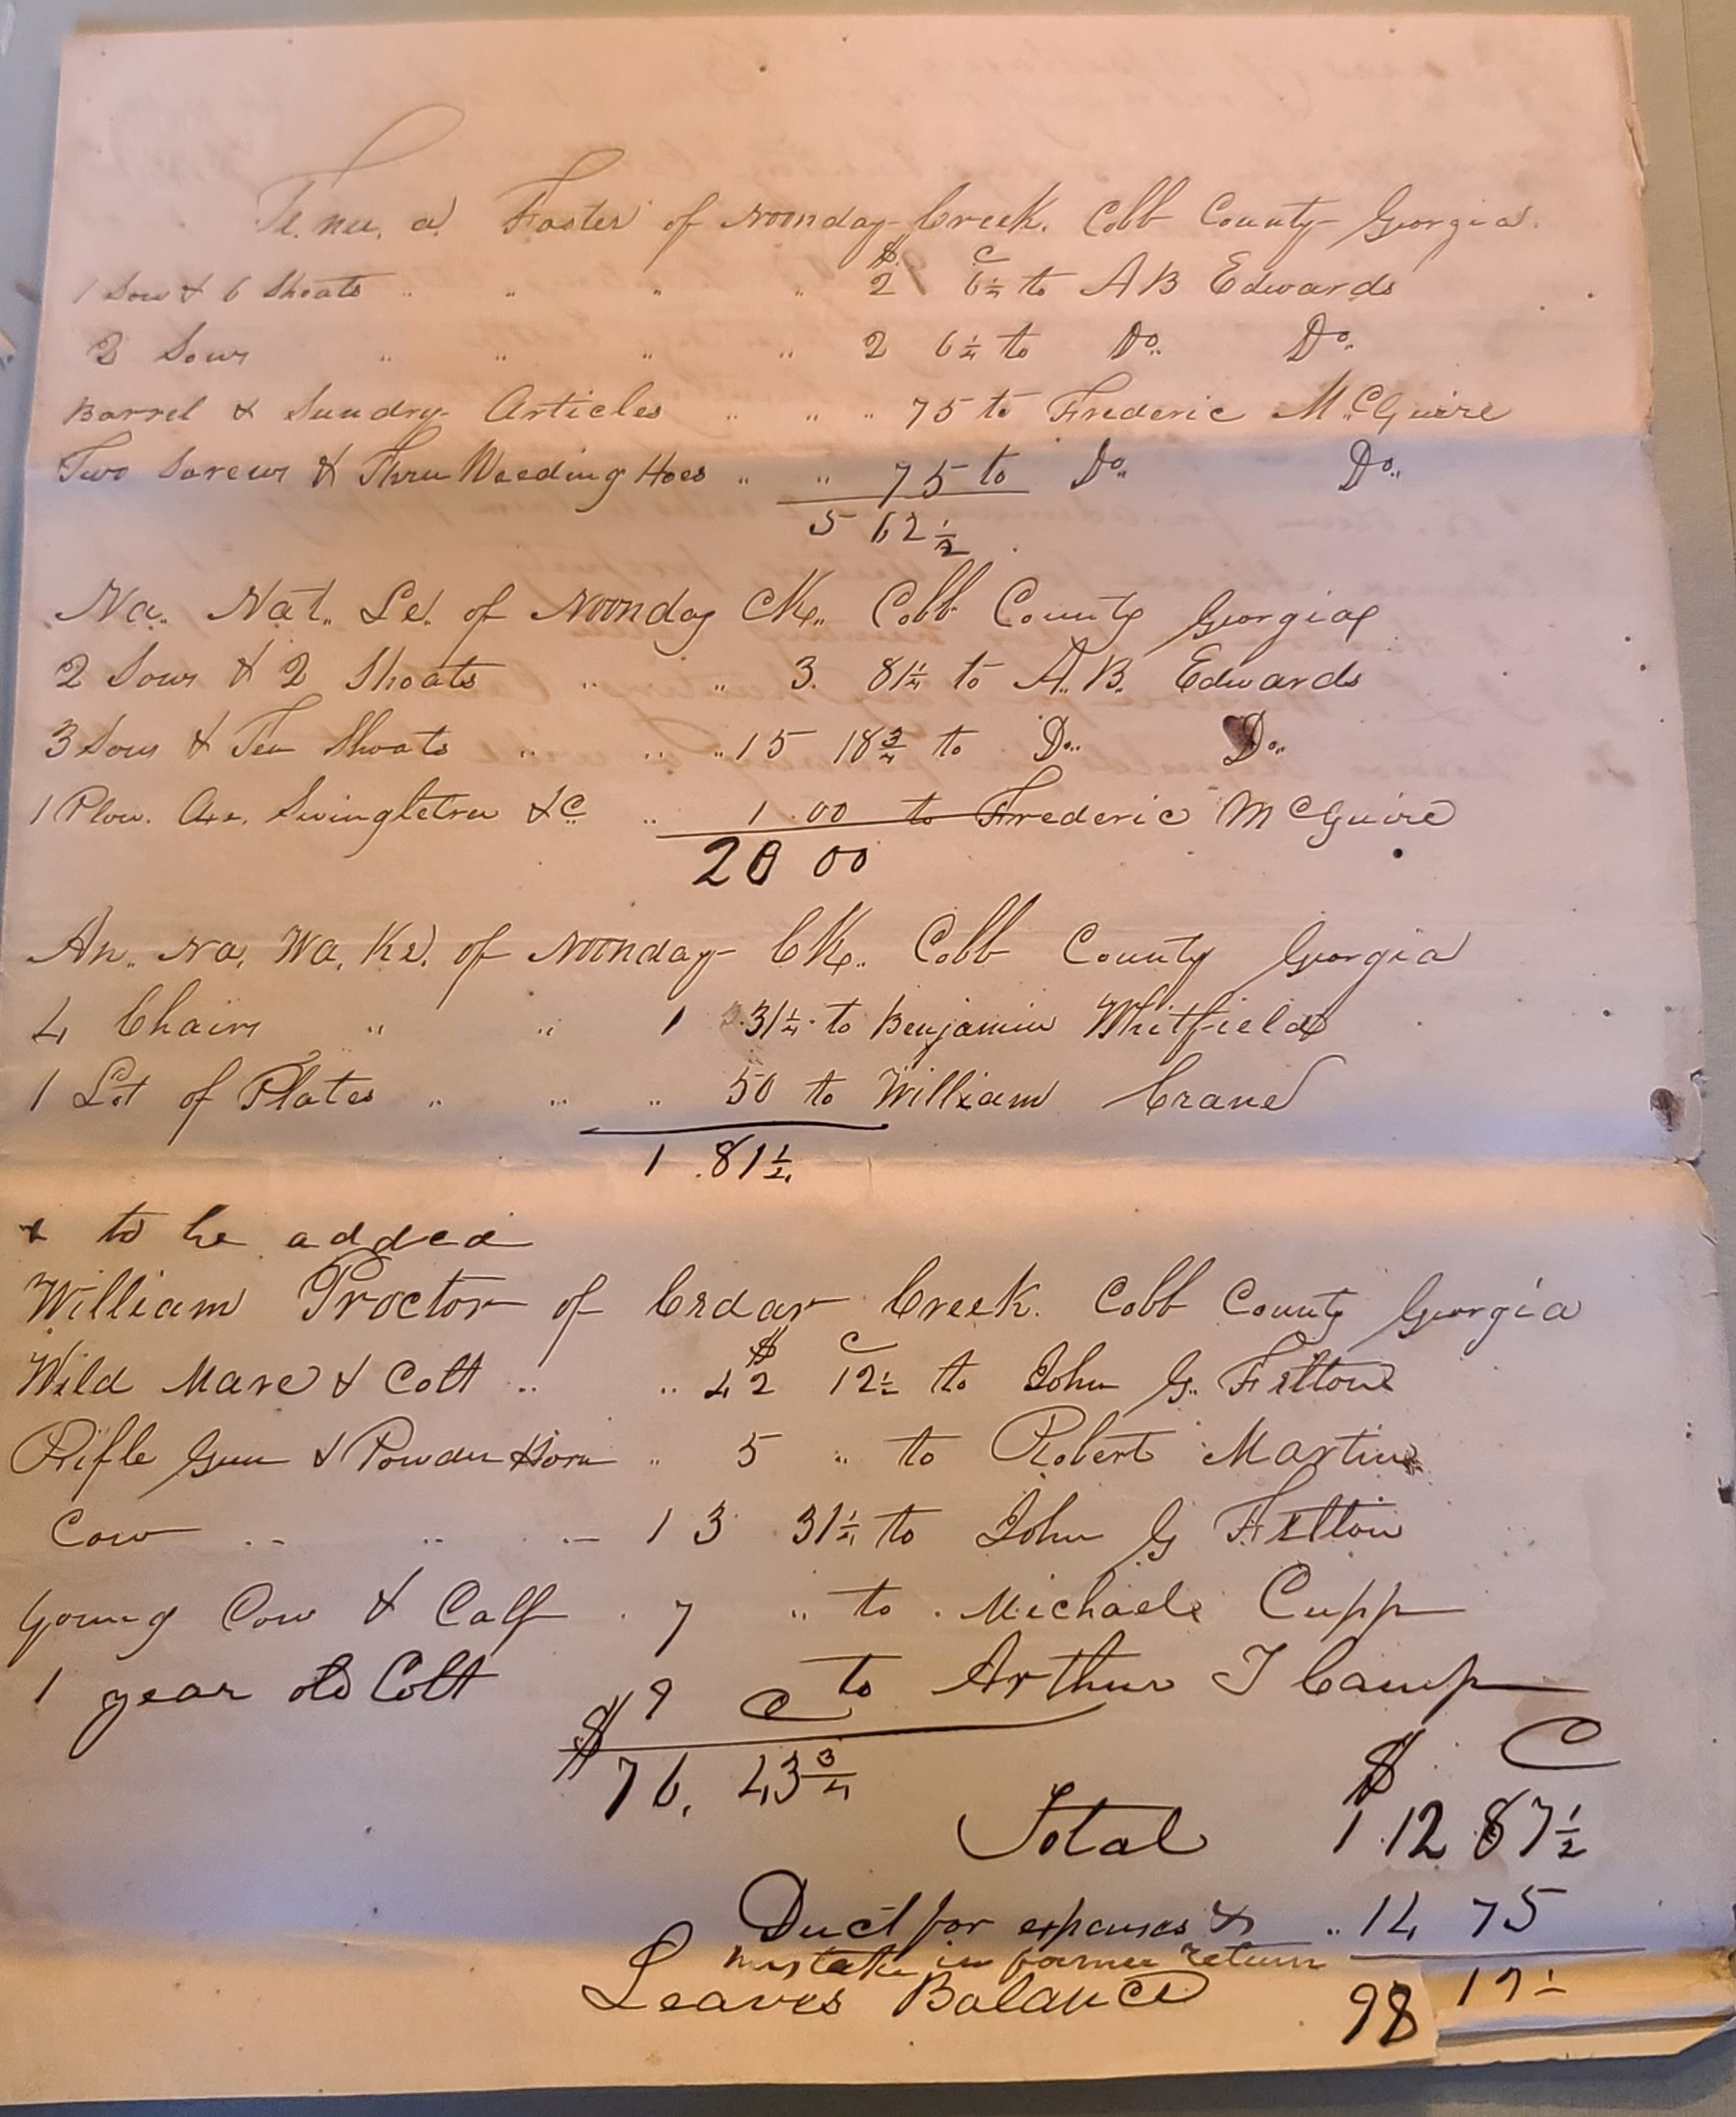 Te. nu. a. Foster of Noonday Creek. Cobb County Georgia.
$ C
1 Sow & 6 Shoats " " " " 2 6¼ to A B Edwards
2 Sows " " " " 2 6¼ to Do. Do.
Barrel & Sundry Articles " " " 75 to Frederic McGuire
Two Screws & Three Weeding Hoes " " 75 to Do. Do.
5 62½
Na. Nat. Le. of Noonday CK. Cobb County Georgia
2 Sows & 2 Shoats " " 3. 81¼ to A. B. Edwards
3 Sows & Ten Shoats " " " 15 18¾ to Do. Do.
1 Plow. Axe. Swingletree &C. " 1.00 to Frederic McGuire
20 00
An. Na. Wa. Ke. of Noonday CK. Cobb County Georgia
4 Chairs " " 1 31¼ to Benjamin Whitfield
1 Lot of Plates " " " 50 to William Crane
1.81¼
& to be added
William Proctor of Cedar Creek. Cobb County Georgia
$ C
Wild Mare & Colt " " 42 12½ to John G. Felton
Rifle Gun & Powder Horn " 5 " to Robert Martin
Cow " " " 13 31¼ to John G Felton
Young Cow & Calf . 7 " to . Michael Cupp
1 year old Colt $ 9 C to Arthur T Camp
76. 43¾
$ C
Total 112 87½
Duct for expenses & " 14 75
mistake in former return
Leaves Balance 98 12½